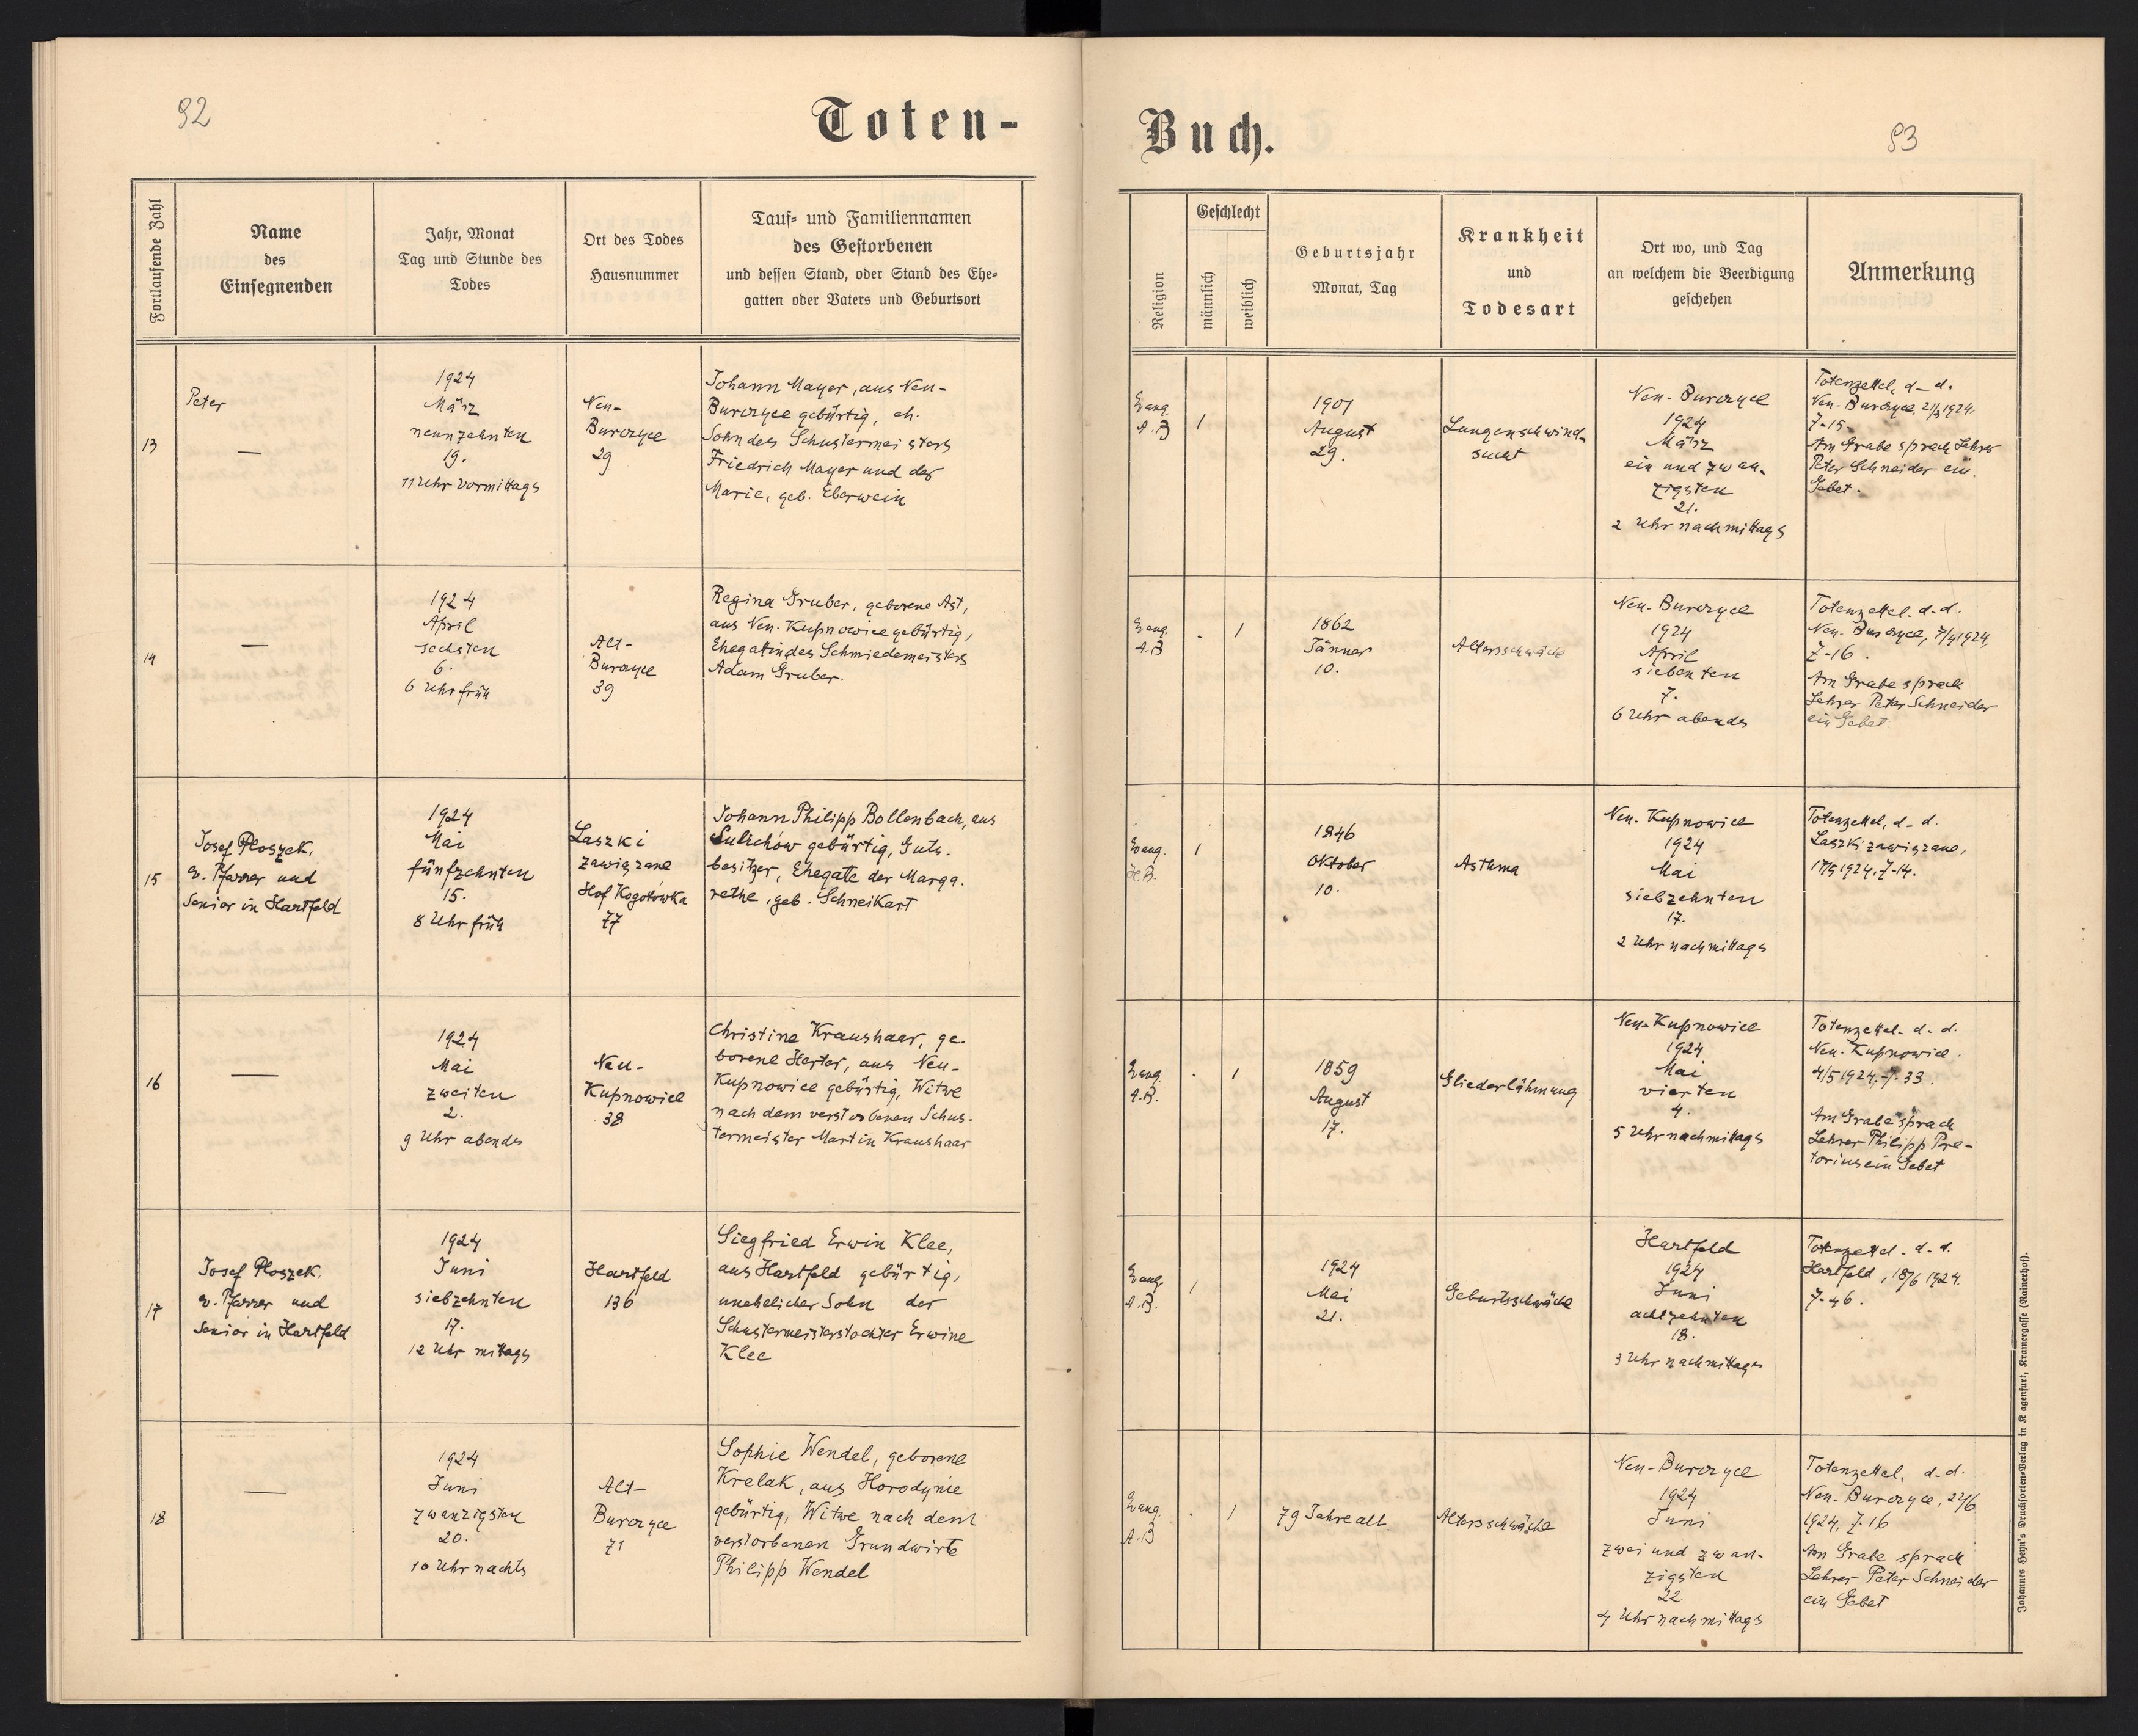 92
Toten-
Fortlaufende Zahl
Name
des
Einsegnenden
Jahr, Monat
Tag und Stunde des
Todes
Ort des Todes
Hausnummer
Tauf- und Familiennamen
des Gestorbenen
und dessen Stand, oder Stand des Ehe-
gatten oder Vaters und Geburtsort
13
Peter
—
1924
März
neunzehnten
19.
11 Uhr vormittags
Neu-
Burczyce
29
Johann Mayer, aus Neu-
Burczyce gebürtig, eh.
Sohn des Schustermeisters
Friedrich Mayer und der
Marie, geb. Eberwein
14
—
1924
April
sechsten
6.
6 Uhr früh
Alt-
Burczyce
39
Regina Gruber, geborene Ast,
aus Neu-Kupnowice gebürtig,
Ehegatin des Schmiedemeisters
Adam Gruber.
15
Josef Ploszek,
ev. Pfarrer und
Senior in Hartfeld
1924
Mai
fünfzehnten
15.
8 Uhr früh
Laszki
zawiązane
Hof Kogotówka
77
Johann Philipp Bollenbach, aus
Sulichów gebürtig, Guts-
besitzer, Ehegate der Marga-
rethe, geb. Schneikart
16
—
1924
Mai
zweiten
2.
9 Uhr abends
Neu-
Kupnowice
38
Christine Kraushaar, ge-
borene Harter, aus Neu-
Kupnowice gebürtig, Witwe
nach dem verstorbenen Schus-
termeister Martin Kraushaar
17
Josef Ploszek
ev. Pfarrer und
Senior in Hartfeld
1924
Juni
siebzehnten
17.
12 Uhr mittags
Hartfeld
136
Siegfried Erwin Klee,
aus Hartfeld gebürtig,
unehelicher Sohn der
Schustermeisterstochter Erwine
Klee
18
—
1924
Juni
zwanzigsten
20.
10 Uhr nachts
Alt-
Burczyce
71
Sophie Wendel, geborene
Krelak, aus Horodynie
gebürtig, Witwe nach dem
verstorbenen Grundwirte
Philipp Wendel
Buch.
93
Religion
Geschlecht
männlich
weiblich
Geburtsjahr
Monat, Tag
Krankheit
und
Todesart
Ort wo, und Tag
an welchem die Beerdigung
geschehen
Anmerkung
Evang.
A.B
1
1901
August
29.
Lungenschwind-
sucht
Neu-Burczyce
1924
März
ein und zwan-
zigsten
21.
2 Uhr nachmittags
Totenzettel, d-d.
Neu-Burczyce, 21/3 1924.
Z-15.
Am Grabe sprach Lehrer
Peter Schneider ein
Gebet.
Evang.
A.B
.
1
1862
Jänner
10.
Altersschwäche
Neu-Burczyce
1924
April
siebenten
7.
6 Uhr abends
Totenzettel. d-d.
Neu-Burczyce, 7/4 1924,
Z-16.
Am Grabe sprach
Lehrer Peter Schneider
ein Gebet
Evang.
H.B.
1
1846
Oktober
10.
Asthma
Neu-Kupnowice
1924
Mai
siebzehnten
17.
2 Uhr nachmittags
Totenzettel, d-d.
Laszki zawiązane,
17/5 1924, Z-14.
Evang.
A.B.
.
1
1859
August
17.
Gliederlähmung
Neu-Kupnowice
1924
Mai
vierten
4.
5 Uhr nachmittags
Totenzettel- d-d.
Neu-Kupnowice.
4/5 1924,-Z-33.
Am Grabe sprach
Lehrer Philipp Pre-
torius ein Gebet
Evang.
A.B.
1
1924
Mai
21.
Geburtsschwäche
Hartfeld
1924
Juni
achtzehnten
18.
3 Uhr nachmittags
Totenzettel-d-d.
Hartfeld, 18/6 1924.
Z-46.
Evang.
A.B
.
1
79 Jahre alt
Altersschwäche
Neu-Burczyce
1924
Juni
zwei und zwan-
zigsten
22.
4 Uhr nachmittags
Totenzettel, d-d.
Neu-Burczyce, 22/6
1924, Z-16
Am Grabe sprach
Lehrer Peter Schneider
ein Gebet
Johannes Heyn's Drucksorten-Verlag in Klagenfurt, Kramergasse (Rainerhof).